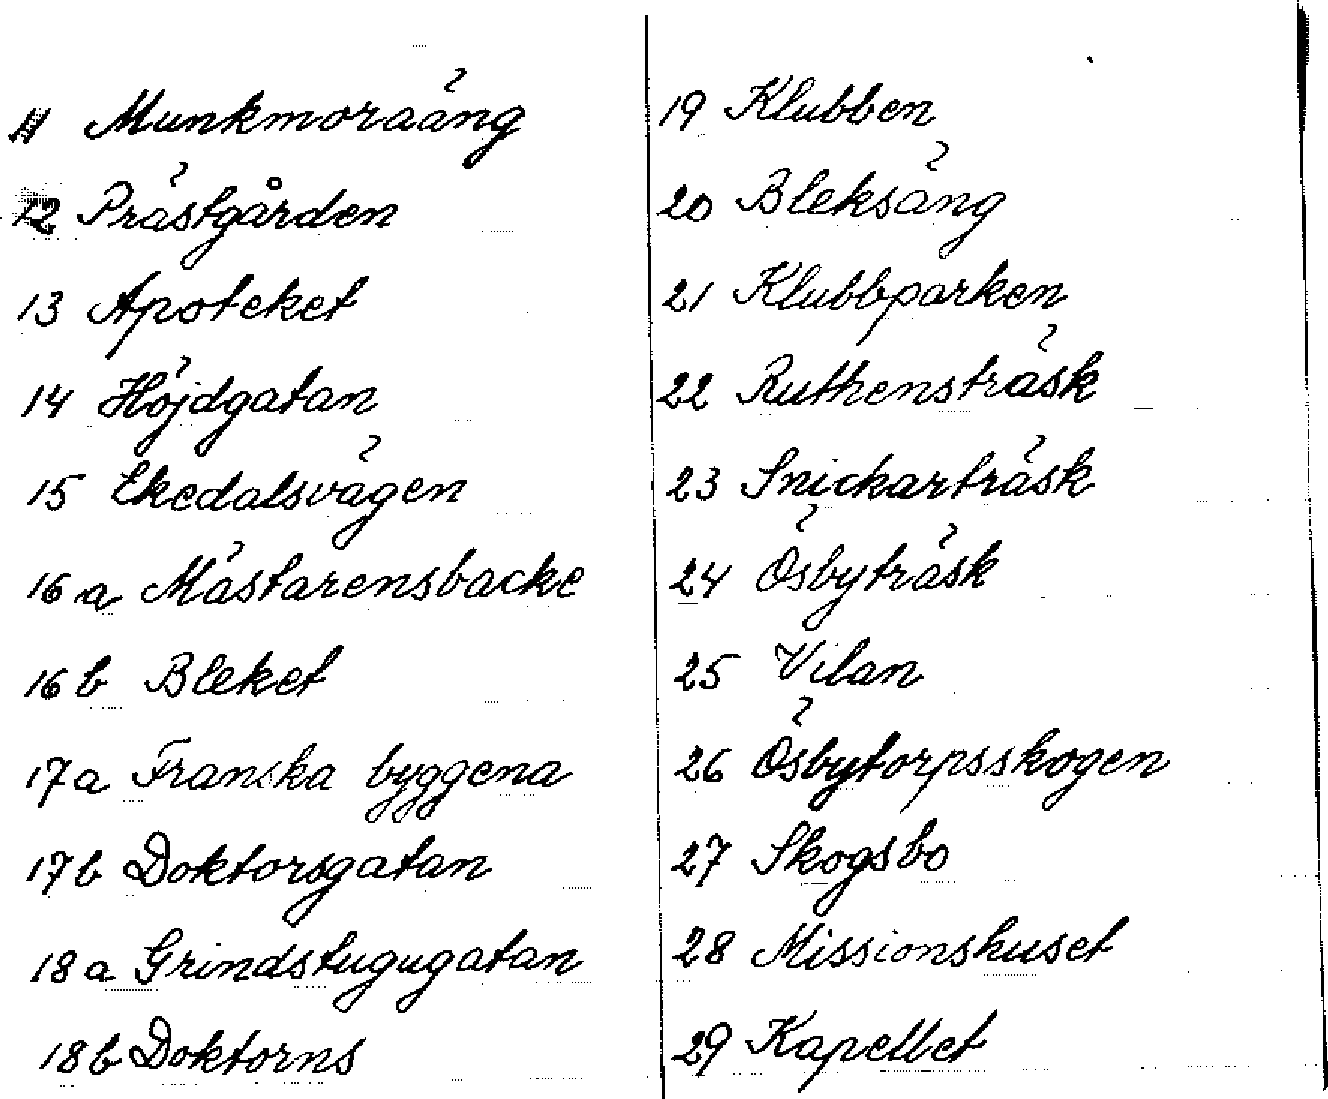 11 Munkmoraäng
12 Prästgården
13 Apoteket
14 Höjdgatan
15 Ekedalsvägen
16a Mästarensbacke
16b Bleket
17a Franska byggena
17b Doktorsgatan
18a Grindstugugatan
18b Doktorns
19 Klubben
20 Bleksäng
21 Klubbparken
22 Ruthensträsk
23 Snickarträsk
24 Ösbyträsk
25 Vilan
26 Ösbytorpsskogen
27 Skogsbo
28 Missionshuset
29 Kapellet